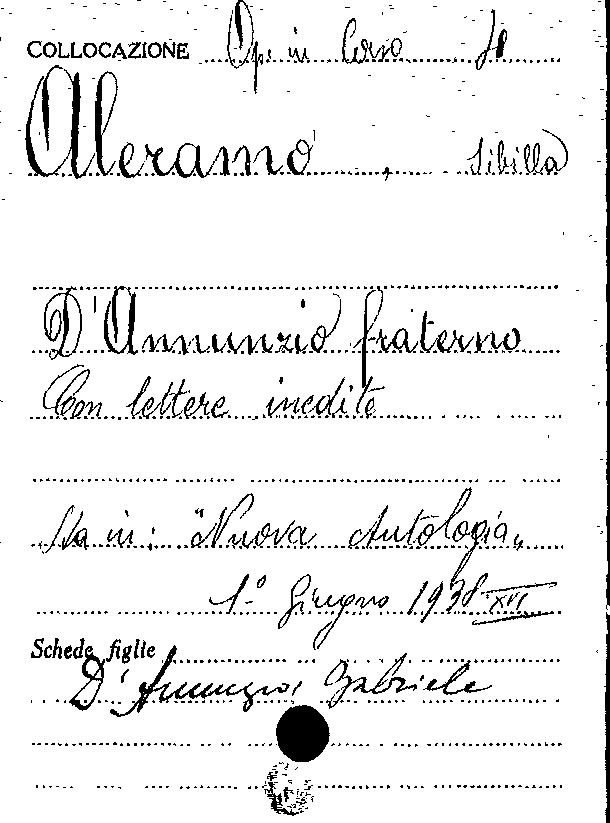 COLLOCAZIONE Op. in Corso
Aleramo, Sibilla
D'Annunzio fraterno
Con lettere inedite
Sta in: "Nuova Antologia„
1º Giugno 1938 XVI
Schede figlie
D'Annunzio, Gabriele